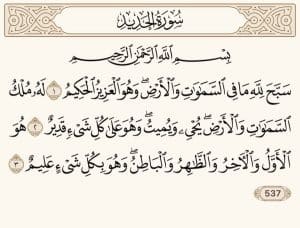 سُورَةُ الحَدِيدِ
بِسْمِ ٱللَّهِ ٱلرَّحْمَٰنِ ٱلرَّحِيمِ
سَبَّحَ لِلَّهِ مَا فِى ٱلسَّمَٰوَٰتِ وَٱلْأَرْضِۖ وَهُوَ ٱلْعَزِيزُ ٱلْحَكِيمُ ١ لَهُۥ مُلْكُ
ٱلسَّمَٰوَٰتِ وَٱلْأَرْضِۖ يُحْىِۦ وَيُمِيتُۖ وَهُوَ عَلَىٰ كُلِّ شَىْءٍ قَدِيرٌ ٢ هُوَ
ٱلْأَوَّلُ وَٱلْءَاخِرُ وَٱلظَّٰهِرُ وَٱلْبَاطِنُۖ وَهُوَ بِكُلِّ شَىْءٍ عَلِيمٌ ٣
537